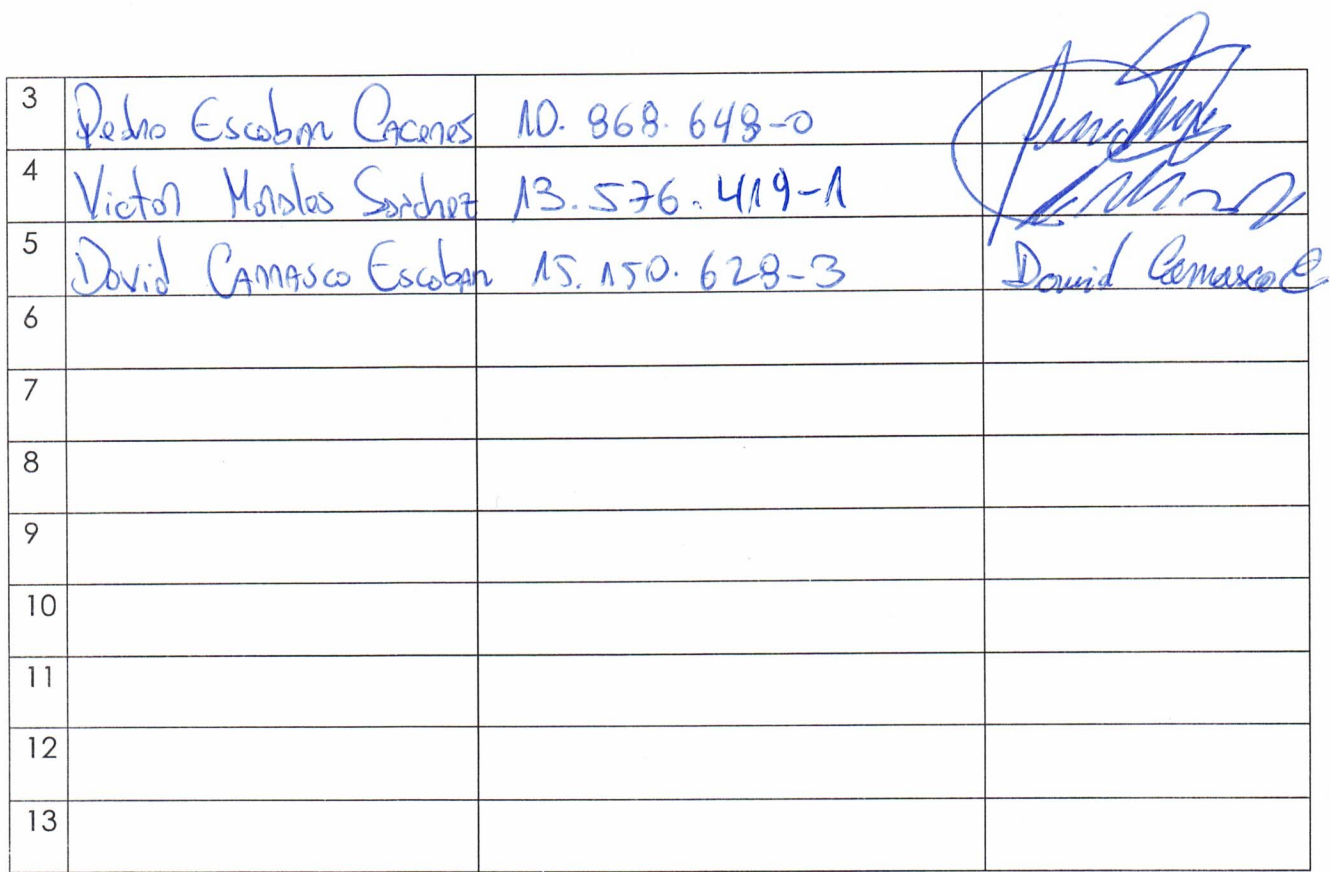 3 Pedro Escobar Caceres 10.868.648-0
4 Victor Morales Sanchez 13.576.419-1
5 David Carrasco Escobar 15.150.628-3 David Carrasco E
6
7
8
9
10
11
12
13